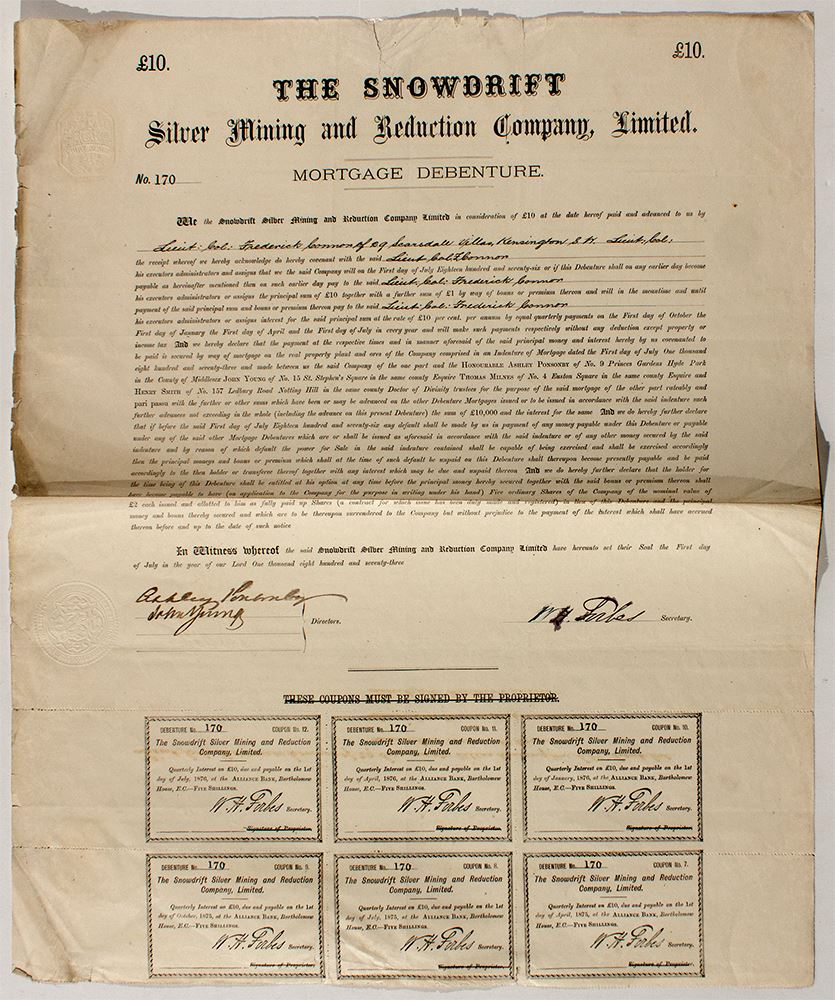 £10.
£10.
THE SNOWDRIFT
Silver Mining and Reduction Company, Limited.
No. 170
MORTGAGE DEBENTURE.
We the Snowdrift Silver Mining and Reduction Company Limited in consideration of £10 at the date hereof paid and advanced to us by
Lieut: Col: Frederick Connon of 29 Scarsdale Villas, Kensington, S. W. Lieut, Col;
the receipt whereof we hereby acknowledge do hereby covenant with the said Lieut Col F Connon
his executors administrators and assigns that we the said Company will on the First day of July Eighteen hundred and seventy-six or if this Debenture shall on any earlier day become
payable as hereinafter mentioned then on such earlier day pay to the said Lieut: Col: Frederick Connon
his executors administrators or assigns the principal sum of £10 together with a further sum of £1 by way of bonus or premium thereon and will in the meantime and until
payment of the said principal sum and bonus or premium thereon pay to the said Lieut: Col: Frederick Connon
his executors administrators or assigns interest for the said principal sum at the rate of £10 per cent. per annum by equal quarterly payments on the First day of October the
First day of January the First day of April and the First day of July in every year and will make such payments respectively without any deduction except property or
income tax And we hereby declare that the payment at the respective times and in manner aforesaid of the said principal money and interest hereby by us covenanted to
be paid is secured by way of mortgage on the real property plant and ores of the Company comprised in an Indenture of Mortgage dated the First day of July One thousand
eight hundred and seventy-three and made between us the said Company of the one part and the HONOURABLE ASHLEY PONSONBY of No. 9 Princes Gardens Hyde Park
in the County of Middlesex JOHN YOUNG of No. 15 St. Stephen's Square in the same county Esquire THOMAS MILNES of No. 4 Euston Square in the same county Esquire and
HENRY SMITH of No. 157 Ledbury Road Notting Hill in the same county Doctor of Divinity trustees for the purpose of the said mortgage of the other part rateably and
pari passu with the further or other sums which have been or may be advanced on the other Debenture Mortgages issued or to be issued in accordance with the said indenture such
further advances not exceeding in the whole (including the advance on this present Debenture) the sum of £10,000 and the interest for the same And we do hereby further declare
that if before the said First day of July Eighteen hundred and seventy-six any default shall be made by us in payment of any money payable under this Debenture or payable
under any of the said other Mortgage Debentures which are or shall be issued as aforesaid in accordance with the said indenture or of any other money secured by the said
indenture and by reason of which default the power for Sale in the said indenture contained shall be capable of being exercised and shall be exercised accordingly
then the principal moneys and bonus or premium which shall at the time of such default be unpaid on this Debenture shall thereupon become presently payable and be paid
accordingly to the then holder or transferee thereof together with any interest which may be due and unpaid thereon And we do hereby further declare that the holder for
the time being of this Debenture shall be entitled at his option at any time before the principal money hereby secured together with the said bonus or premium thereon shall
have become payable to have (on application to the Company for the purpose in writing under his hand) Five ordinary Shares of the Company of the nominal value of
£2 each issued and allotted to him as fully paid up Shares (a contract for which issue has been duly made and registered) in lieu of this Debenture and the principal
money and bonus thereby secured and which are to be thereupon surrendered to the Company but without prejudice to the payment of the interest which shall have accrued
thereon before and up to the date of such notice
In Witness whereof the said Snowdrift Silver Mining and Reduction Company Limited have hereunto set their Seal the First day
of July in the year of our Lord One thousand eight hundred and seventy-three
Ashley Ponsonby
John Young
Directors.
W. H. Forbes Secretary.
THESE COUPONS MUST BE SIGNED BY THE PROPRIETOR.
DEBENTURE No. 170 COUPON No. 12.
The Snowdrift Silver Mining and Reduction
Company, Limited.
Quarterly Interest on £10, due and payable on the 1st
day of July, 1876, at the ALLIANCE BANK, Bartholomew
House, E.C.—FIVE SHILLINGS.
W. H. Forbes Secretary.
Signature of Proprietor.
DEBENTURE No. 170 COUPON No. 11.
The Snowdrift Silver Mining and Reduction
Company, Limited.
Quarterly Interest on £10, due and payable on the 1st
day of April, 1876, at the ALLIANCE BANK, Bartholomew
House, E.C.—FIVE SHILLINGS.
W. H. Forbes Secretary.
Signature of Proprietor.
DEBENTURE No. 170 COUPON No. 10.
The Snowdrift Silver Mining and Reduction
Company, Limited.
Quarterly Interest on £10, due and payable on the 1st
day of January, 1876, at the ALLIANCE BANK, Bartholomew
House, E.C.—FIVE SHILLINGS.
W. H. Forbes Secretary.
Signature of Proprietor.
DEBENTURE No. 170 COUPON No. 9.
The Snowdrift Silver Mining and Reduction
Company, Limited.
Quarterly Interest on £10, due and payable on the 1st
day of October, 1875, at the ALLIANCE BANK, Bartholomew
House, E.C.—FIVE SHILLINGS.
W. H. Forbes Secretary.
Signature of Proprietor.
DEBENTURE No. 170 COUPON No. 8.
The Snowdrift Silver Mining and Reduction
Company, Limited.
Quarterly Interest on £10, due and payable on the 1st
day of July, 1875, at the ALLIANCE BANK, Bartholomew
House, E.C.—FIVE SHILLINGS.
W. H. Forbes Secretary.
Signature of Proprietor.
DEBENTURE No. 170 COUPON No. 7.
The Snowdrift Silver Mining and Reduction
Company, Limited.
Quarterly Interest on £10, due and payable on the 1st
day of April, 1875, at the ALLIANCE BANK, Bartholomew
House, E.C.—FIVE SHILLINGS.
W. H. Forbes Secretary.
Signature of Proprietor.